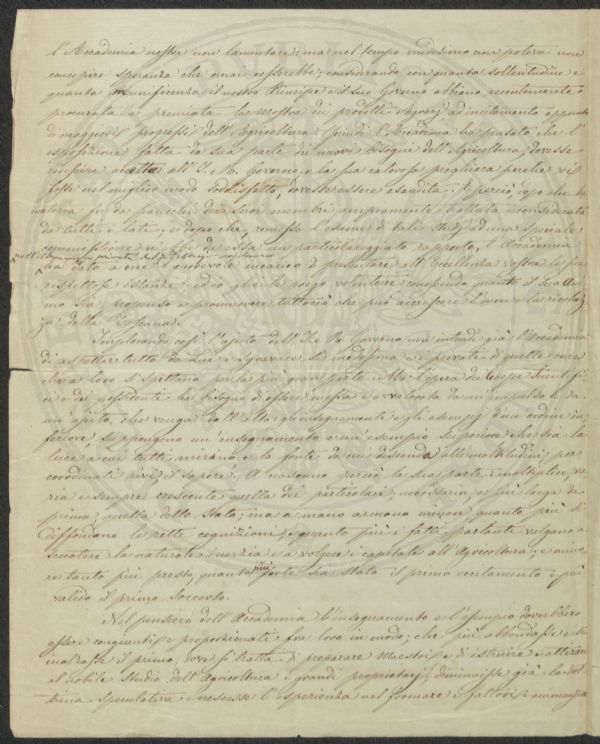 l'Accademia nostra non lamentare: ma nel tempo medesimo non poteva non
concepire speranza che omai cesserebbe, considerando con quanta sollecitudine e
quanta munificenza il nostro Principe e il suo Governo abbiano recentemente
procurata e premiata la mostra dei prodotti Agrarj ad incitamento appunto
di maggiori progressi dell'Agricoltura. Quindi l'Accademia ha pensato che l'
esposizione fatta da sua parte dei nuovi bisogni dell'Agricoltura, dovesse
riuscire accetta all'I. R. Governo, e la sua calorosa preghiera perché vi si
fosse nel miglior modo soddisfatto, dovesse essere esaudita: E perciò, dopo che la
materia fu da parecchi dei suoi membri ampiamente trattata e considerata
da tutti i lati, e dopo che, rimesso l'esame di tali studj ad una speciale
commissione n'ebbe da essa un particolareggiato rapporto, l'Accademia
nell'adunanza privata del
ha dato a me l'onorevole incarico di presentare all'Eccellenza vostra le sue
rispettose istanze: ed io glie le porgo volentieri conoscendo quanto il Suo Ani-
mo sia propenso a promuovere tuttociò che può accrescere l'onore e la ricchez-
za della Toscana.
Implorando così l'ajuto dell'I. e R. Governo non intende già l'Accademia
di aspettar tutto da lui e sgravare se medesima e i privati di quelle cure
che a loro si spettano per la più gran parte. Ma l'opera dei corpi scientifi-
ci e dei possidenti ha bisogno di essere mossa e avvalorata da un impulso e da
un ajuto, che venga dall'alto: gli insegnamenti e gli esempj d'un ordine in-
feriore suppongono un insegnamento e un esempio superiore che sia la
luce a cui tutti mirano e la fonte da cui discenda alle moltitudini per
coordinati rivi il sapere. A nascuno perciò la sua parte: molteplice, va-
ria e sempre crescente quella dei particolari; necessaria, e più larga da
prima, quella dello Stato; ma a mano a mano minore, quanto più si
diffondano le rette cognizioni, e quanto più i fatti parlanti valgano a
scuotere la naturale inerzia e a volgere i capitali all'Agricoltura; e mino-
re tanto più presto, quanto più forte sia stato il primo eccitamento e più
valido il primo soccorso.
Nel pensiero dell'Accademia l'insegnamento e l'esempio dovrebbero
essere congiunti e proporzionati fra loro in modo, che più abbondasse e s'
inalzasse il primo, dove si tratta di preparare Maestri e di istruire e attirare
al nobile studio dell'Agricoltura i grandi proprietarj; diminuisse già la dot-
trina speculativa e crescesse l'esperienza nel formare i fattori e